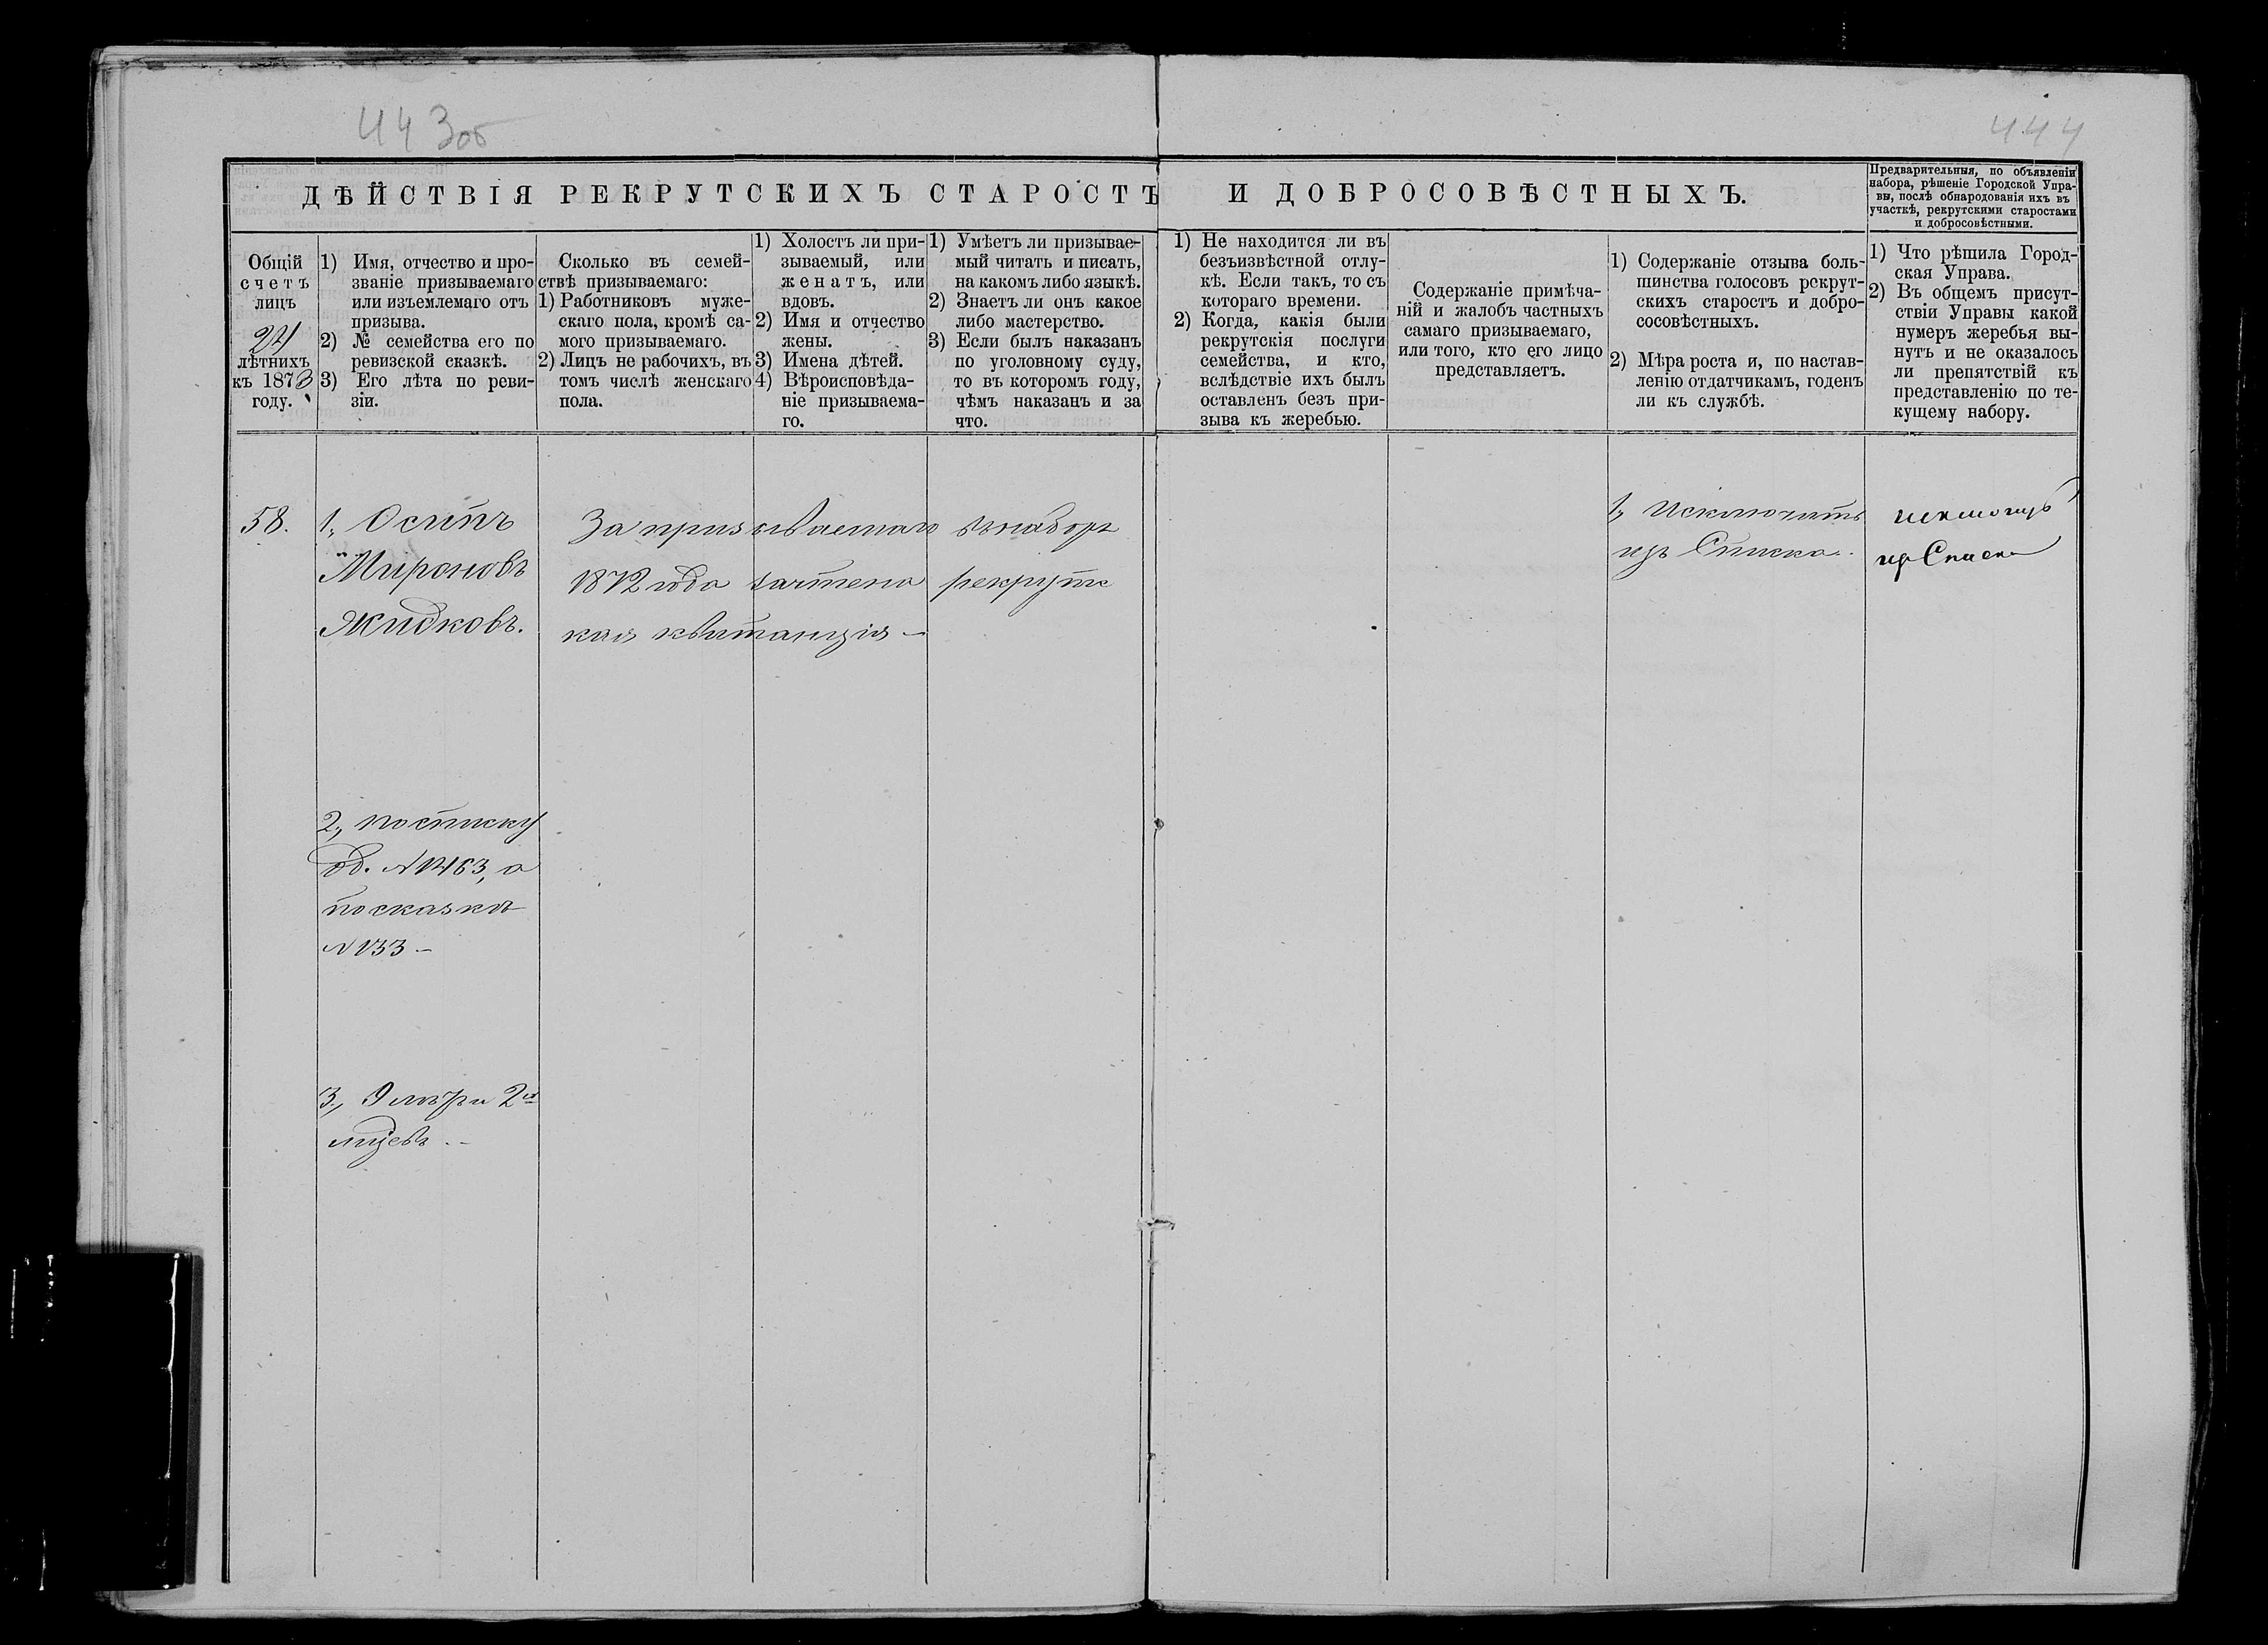 443об
444
ДѢЙСТВІЯ РЕКРУТСКИХЪ СТАРОСТЪ И ДОБРОСОВѢСТНЫХЪ.
Предварительныя, по объявленіи
набора, рѣшеніе Городской Упра-
вы, послѣ обнародованія ихъ въ
участкѣ, рекрутскими старостами
и добросовѣстными.
Общій
счетъ
лицъ
21
лѣтнихъ
къ 1873
году.
1) Имя, отчество и про-
званіе призываемаго
или изъемлемаго отъ
призыва.
2) № семейства его по
ревизской сказкѣ.
3) Его лѣта по реви-
зіи.
Сколько въ семей-
ствѣ призываемаго:
1) Работниковъ муже-
скаго пола, кромѣ са-
мого призываемаго.
2) Лицъ не рабочихъ, въ
томъ числѣ женскаго
пола.
1) Холостъ ли при-
зываемый, или
женатъ, или
вдовъ.
2) Имя и отчество
жены.
3) Имена дѣтей.
4) Вѣроисповѣда-
ніе призываема-
го.
1) Умѣетъ ли призывае-
мый читать и писать,
на какомъ либо языкѣ.
2) Знаетъ ли онъ какое
либо мастерство.
3) Если былъ наказанъ
по уголовному суду,
то въ которомъ году,
чѣмъ наказанъ и за
что.
1) Не находится ли въ
безъизвѣстной отлу-
кѣ. Если такъ, то съ
котораго времени.
2) Когда, какія были
рекрутскія послуги
семейства, и кто,
вслѣдствіе ихъ былъ
оставленъ безъ при-
зыва къ жеребью.
Содержаніе примѣча-
ній и жалобъ частныхъ
самаго призываемаго,
или того, кто его лицо
представляетъ.
1) Содержаніе отзыва боль-
шинства голосовъ рекрут-
скихъ старостъ и добро-
сосовѣстныхъ.
2) Мѣра роста и, по настав-
ленію отдатчикамъ, годенъ
ли къ службѣ.
1) Что рѣшила Город-
ская Управа.
2) Въ общемъ присут-
ствіи Управы какой
нумеръ жеребья вы-
нутъ и не оказалось
ли препятствій къ
представленію по те-
кущему набору.
58.
1., Осипъ
Мироновъ
Жидковъ.
За призываемаго въ наборъ
1872 года зачтена рекрутс
кая квитанція —
1., Исключить
изъ Списка.
исключить
изъ Списка
2., по списку
об. № 1463, а
по сказкѣ
№ 133 —
3., 9 лѣтъ и 2
мѣсяцевъ . –